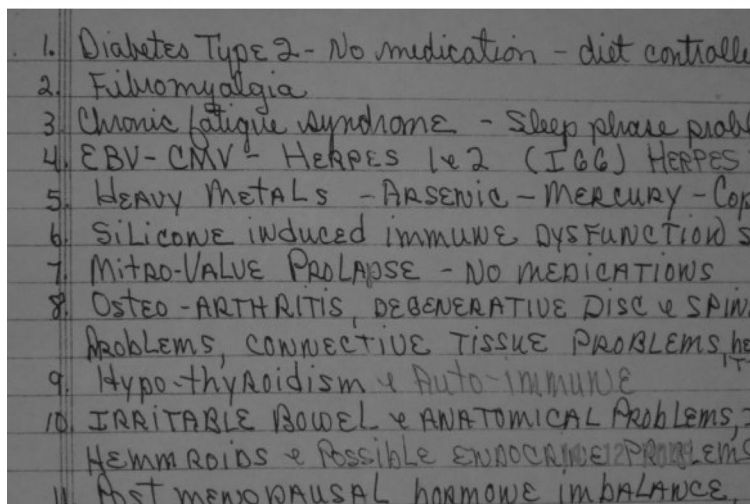 1. Diabetes Type 2 - No medication - diet controlle
2. Fibromyalgia
3. Chronic fatigue syndrome - Sleep phase probl
4. EBV - CMV - HERPES 1 & 2 (IGG) HERPES
5. HEAVY METALS - ARSENIC - MERCURY - Cop
6. SiLiCONE iNduced iMMUNE DYSFUNCTION S
7. MiTRO-VALUE PROLAPSE - NO MEDICATIONS
8. OSTEO-ARTHRITIS, DEGENERATIVE DISC & SPIN
PROBLEMS, CONNECTIVE TISSUE PROBLEMS, he
9. Hypo-thyRoidism & Auto-immUNE
10. IRRiTABLE BOWEL & ANATOMICAL PROBLEMS,
HEMMROIDS & POSSIBLE ENDOCRINE PROBLEMS
11. POST MENOPAUSAL hORMONE IMBALANCE